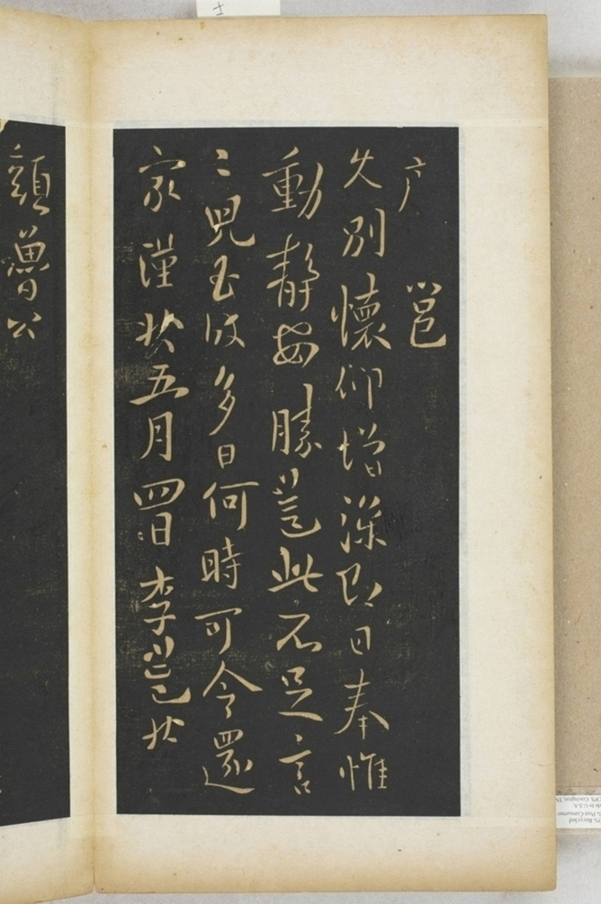 邕
久別懷仰增深即日奉惟
動靜安勝邕此不足言
二兒至彼多日何時可令還
家謹狀五月四日李邕狀
顏魯公